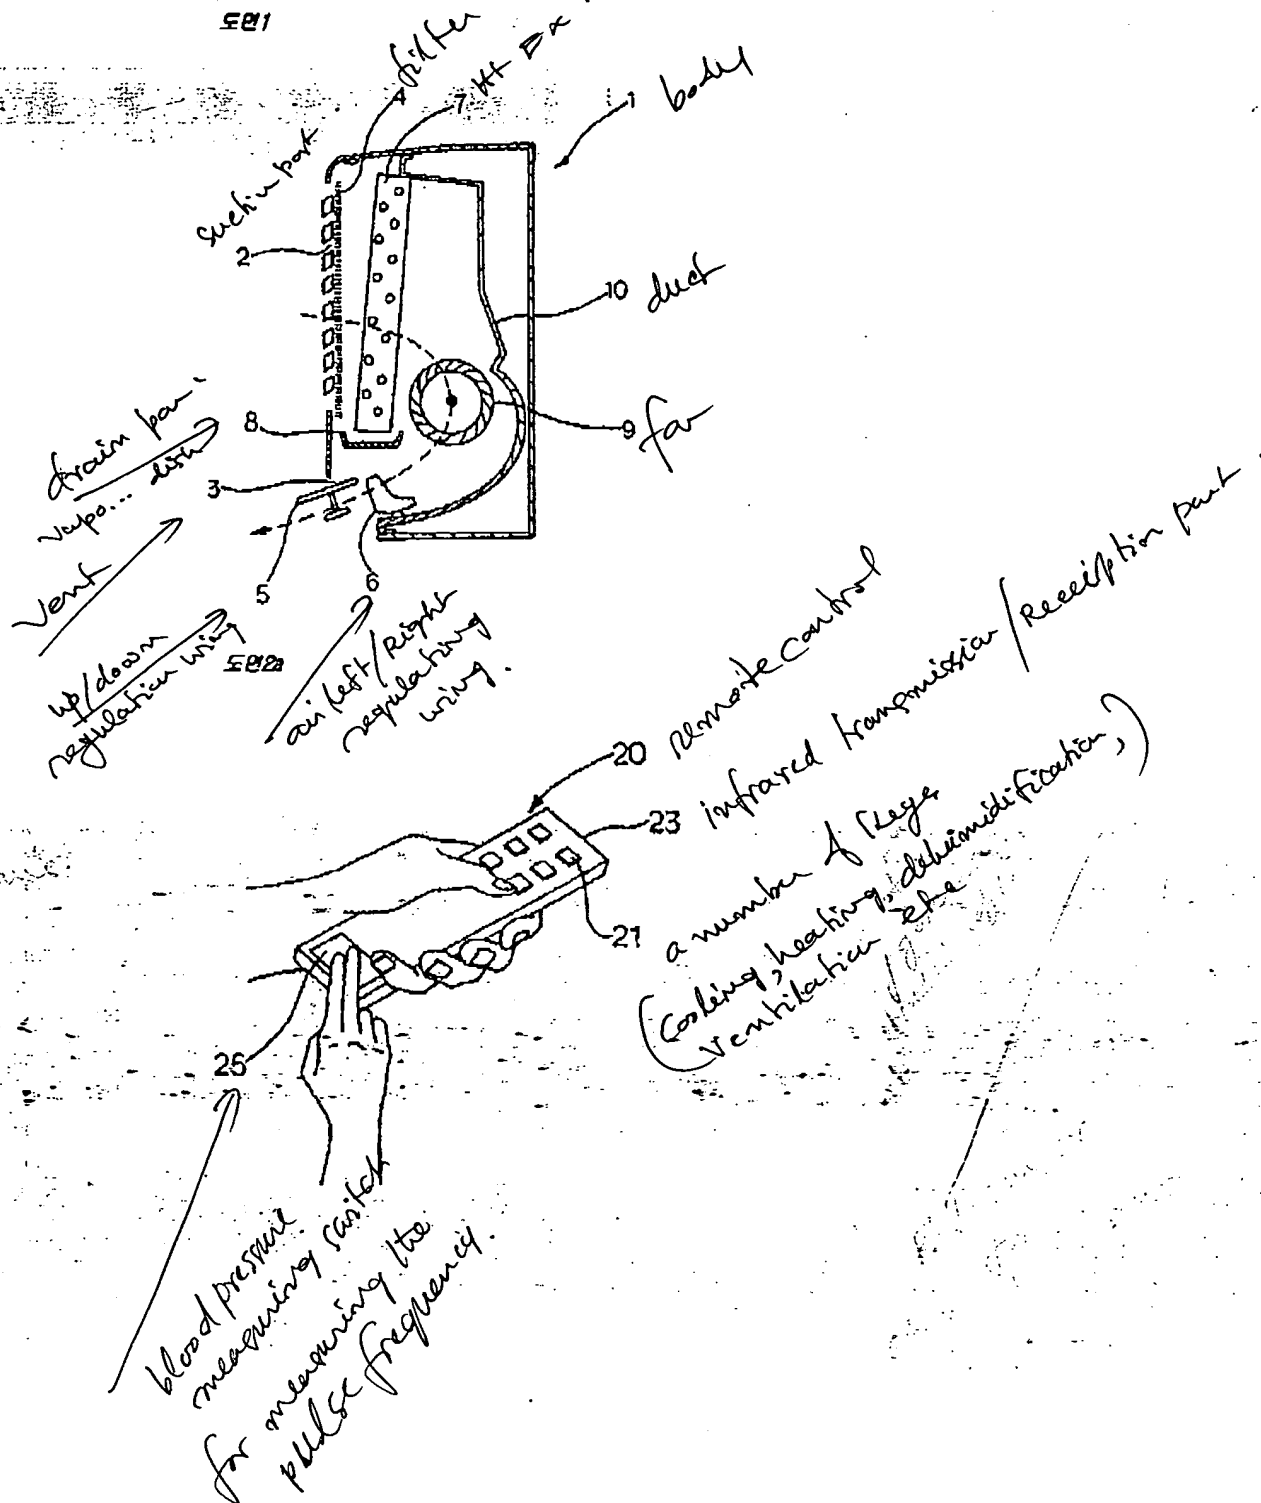 도면1
filter
4
7 Ht Ex
1 body
suction part
2
10 duct
8
9 fan
drain pan
vapo... dish
3
vent
5
6
up/down
regulation wing
air left/Right
regulating
wing.
도면2a
20 remote control
23 infrared transmission/Receiption part
21
a number of keys
(Cooling, heating, dehumidification,)
ventilation etc
25
blood pressure
measuring switch
for measuring the
pulse frequency.